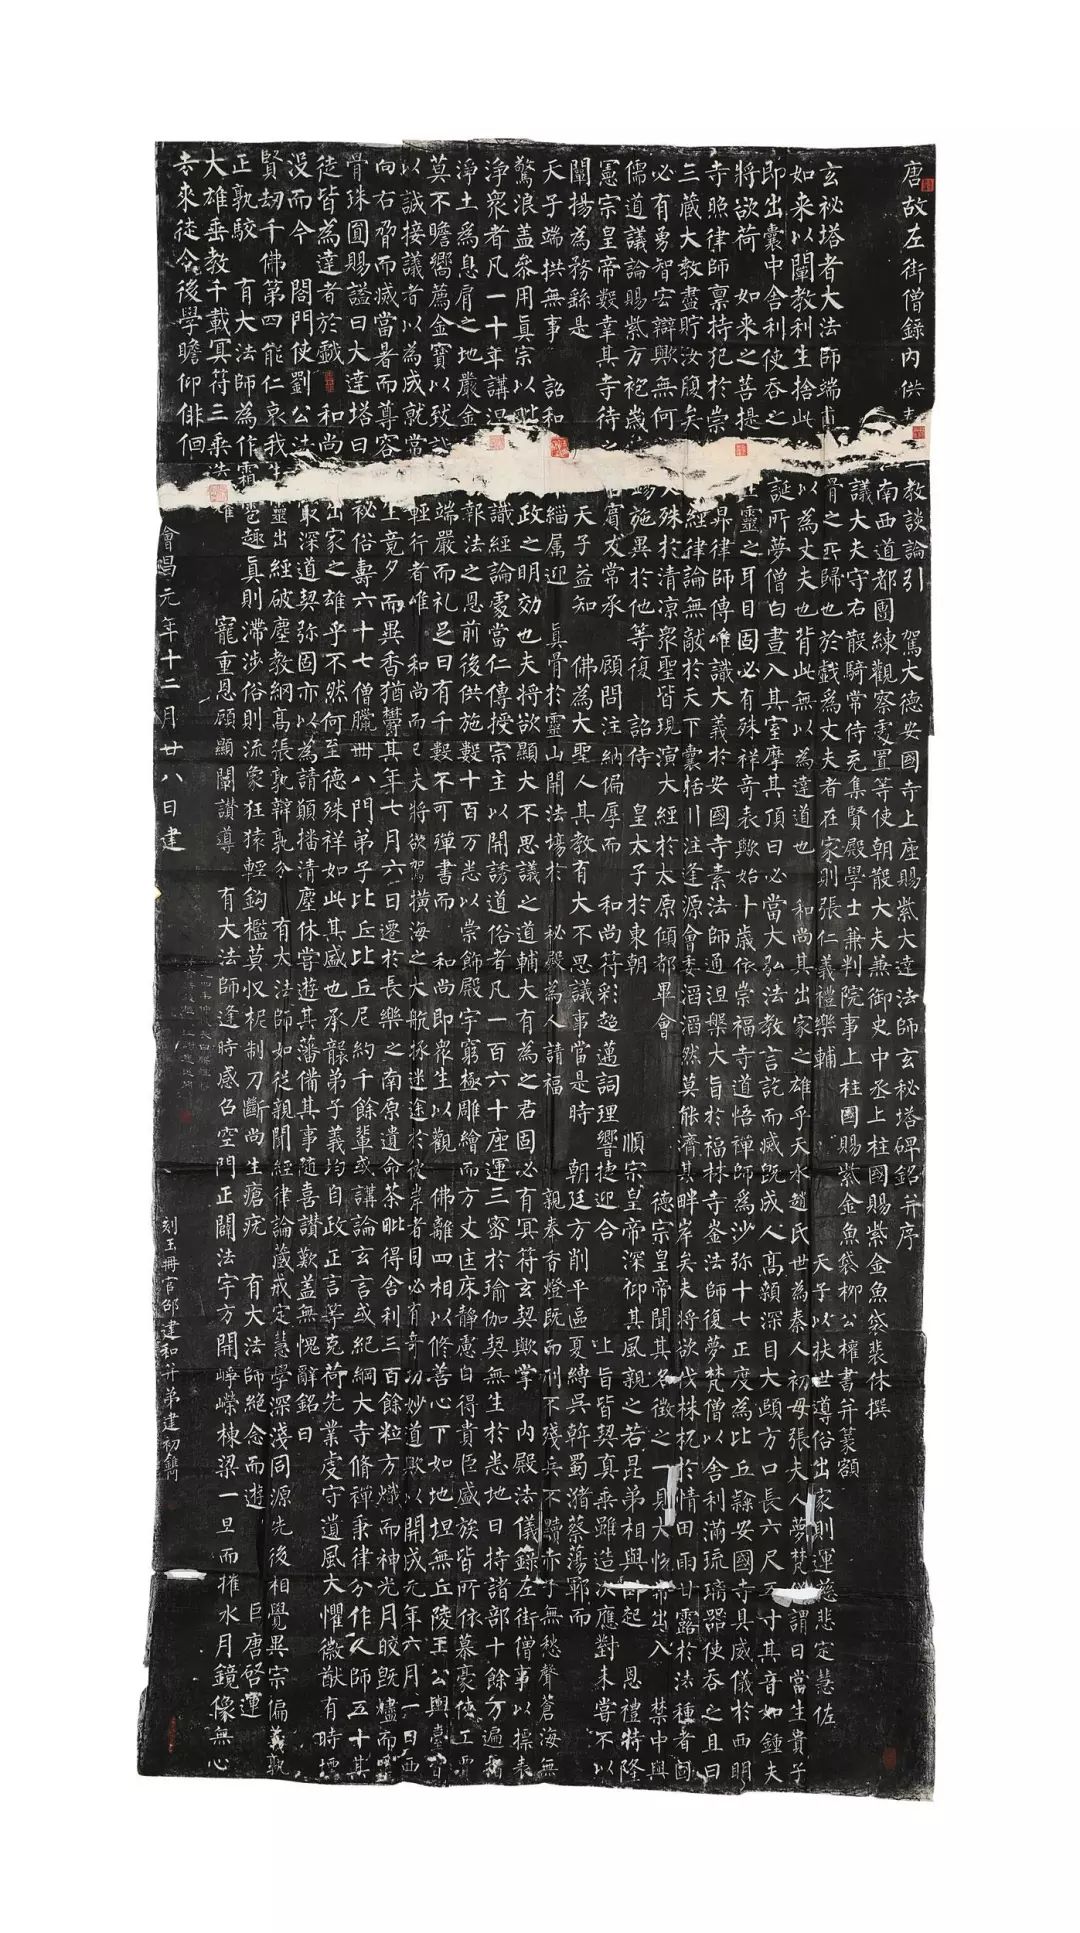 唐故左街僧錄內供 教談論引 駕大德安國寺上座賜紫大達法師玄秘塔碑銘并序
南西道都團練觀察處置等使朝散大夫兼御史中丞上柱國賜紫金魚袋裴休撰
議大夫守右散騎常侍充集賢殿學士兼判院事上柱國賜紫金魚袋柳公權書并篆額
玄祕塔者大法師端 骨之所歸也於戲為丈夫者在家則張仁義禮樂輔 天子以扶世導俗出家則運慈悲定慧佐
如來以闡教利生捨此 以為丈夫也背此無以為達道也 和尚其出家之雄乎天水趙氏世為秦人初母張夫人夢梵 謂曰當生貴子
即出囊中舍利使吞之 誕所夢僧白晝入其室摩其頂曰必當大弘法教言訖而滅既成人高顙深目大頤方口長六尺五寸其音如鐘夫
將欲荷 如來之菩提 靈之耳目固必有殊祥奇表歟始十歲依崇福寺道悟禪師為沙弥十七正度為比丘隸安國寺具威儀於西明
寺照律師禀持犯於崇 昇律師傳唯識大義於安國寺素法師通涅槃大旨於福林寺崟法師復夢梵僧以舍利滿琉璃器使吞之且曰
三藏大教盡貯汝腹矣 經律論無敵於天下囊括川注逢源會委滔滔然莫能濟其畔岸矣夫將欲伐株杌於情田雨甘露於法種者固
必有勇智宏辯歟無何 殊於清涼眾聖皆現演大經於太原傾都畢會 德宗皇帝聞其名徵之一見大悅常出入 禁中與
儒道議論賜紫方袍歲 錫施異於他等復 詔侍 皇太子於東朝 順宗皇帝深仰其風親之若昆弟相與臥起 恩禮特隆
憲宗皇帝數幸其寺待之 賓友常承 顧問注納偏厚而 和尚符彩超邁詞理響捷迎合 上旨皆契真乘雖造次應對未嘗不以
闡揚為務繇是 天子益知 佛為大聖人其教有大不思議事當是時 朝廷方削平區夏縛吳斡蜀瀦蔡蕩鄆而
天子端拱無事 詔和 緇属迎 真骨於靈山開法場於 秘殿為人請福 親奉香燈既而刑不殘兵不黷赤子無愁聲蒼海無
驚浪蓋參用真宗以毗 政之明効也夫將欲顯大不思議之道輔大有為之君固必有冥符玄契歟掌 內殿法儀錄左街僧事以標表
淨眾者凡一十年講涅 識經論處當仁傳授宗主以開誘道俗者凡一百六十座運三密於瑜伽契無生於悉地日持諸部十餘万遍指
淨土為息肩之地嚴金 報法之恩前後供施數十百万悉以崇飾殿宇窮極雕繪而方丈匡床靜慮自得貴臣盛族皆所依慕豪俠工賈
莫不瞻嚮薦金寶以致 端嚴而礼足日有千數不可殫書而 和尚即眾生以觀 佛離四相以修善心下如地坦無丘陵王公輿臺皆
以誠接議者以為成就常 輕行者唯 和尚而已夫將欲駕橫海之大航拯迷途於彼岸者固必有奇功妙道歟以開成元年六月一日西
向右脅而滅當暑而尊容 生竟夕而異香猶鬱其年七月六日遷於長樂之南原遺命茶毗得舍利三百餘粒方熾而神光月皎既燼而靈
骨珠圓賜謚曰大達塔曰 秘俗壽六十七僧臘卌八門弟子比丘比丘尼約千餘輩或講論玄言或紀綱大寺脩禪秉律分作人師五十其
徒皆為達者於戲 和尚 出家之雄乎不然何至德殊祥如此其盛也承襲弟子義均自政正言等克荷先業虔守遺風大懼徽猷有時堙
沒而今 閤門使劉公法 取深道契弥固亦以為請願播清塵休嘗遊其藩備其事隨喜讚歎蓋無愧辭銘曰
賢劫千佛第四能仁哀我生靈出經破塵教網高張孰辯孰分 有大法師如從親聞經律論藏戒定慧學深淺同源先後相覺異宗偏義孰
正孰駮 有大法師為作霜雹趣真則滯涉俗則流象狂猿輕鈎檻莫收柅制刀斷尚生瘡疣 有大法師絕念而遊 巨唐啓運
大雄垂教千載冥符三乘迭 寵重恩顧顯闡讚導 有大法師逢時感召空門正闢法宇方開崢嶸棟梁一旦而摧水月鏡像無心
去來徒令後學瞻仰俳佪
會昌元年十二月廿八日建 刻玉冊官邵建和并弟建初鐫